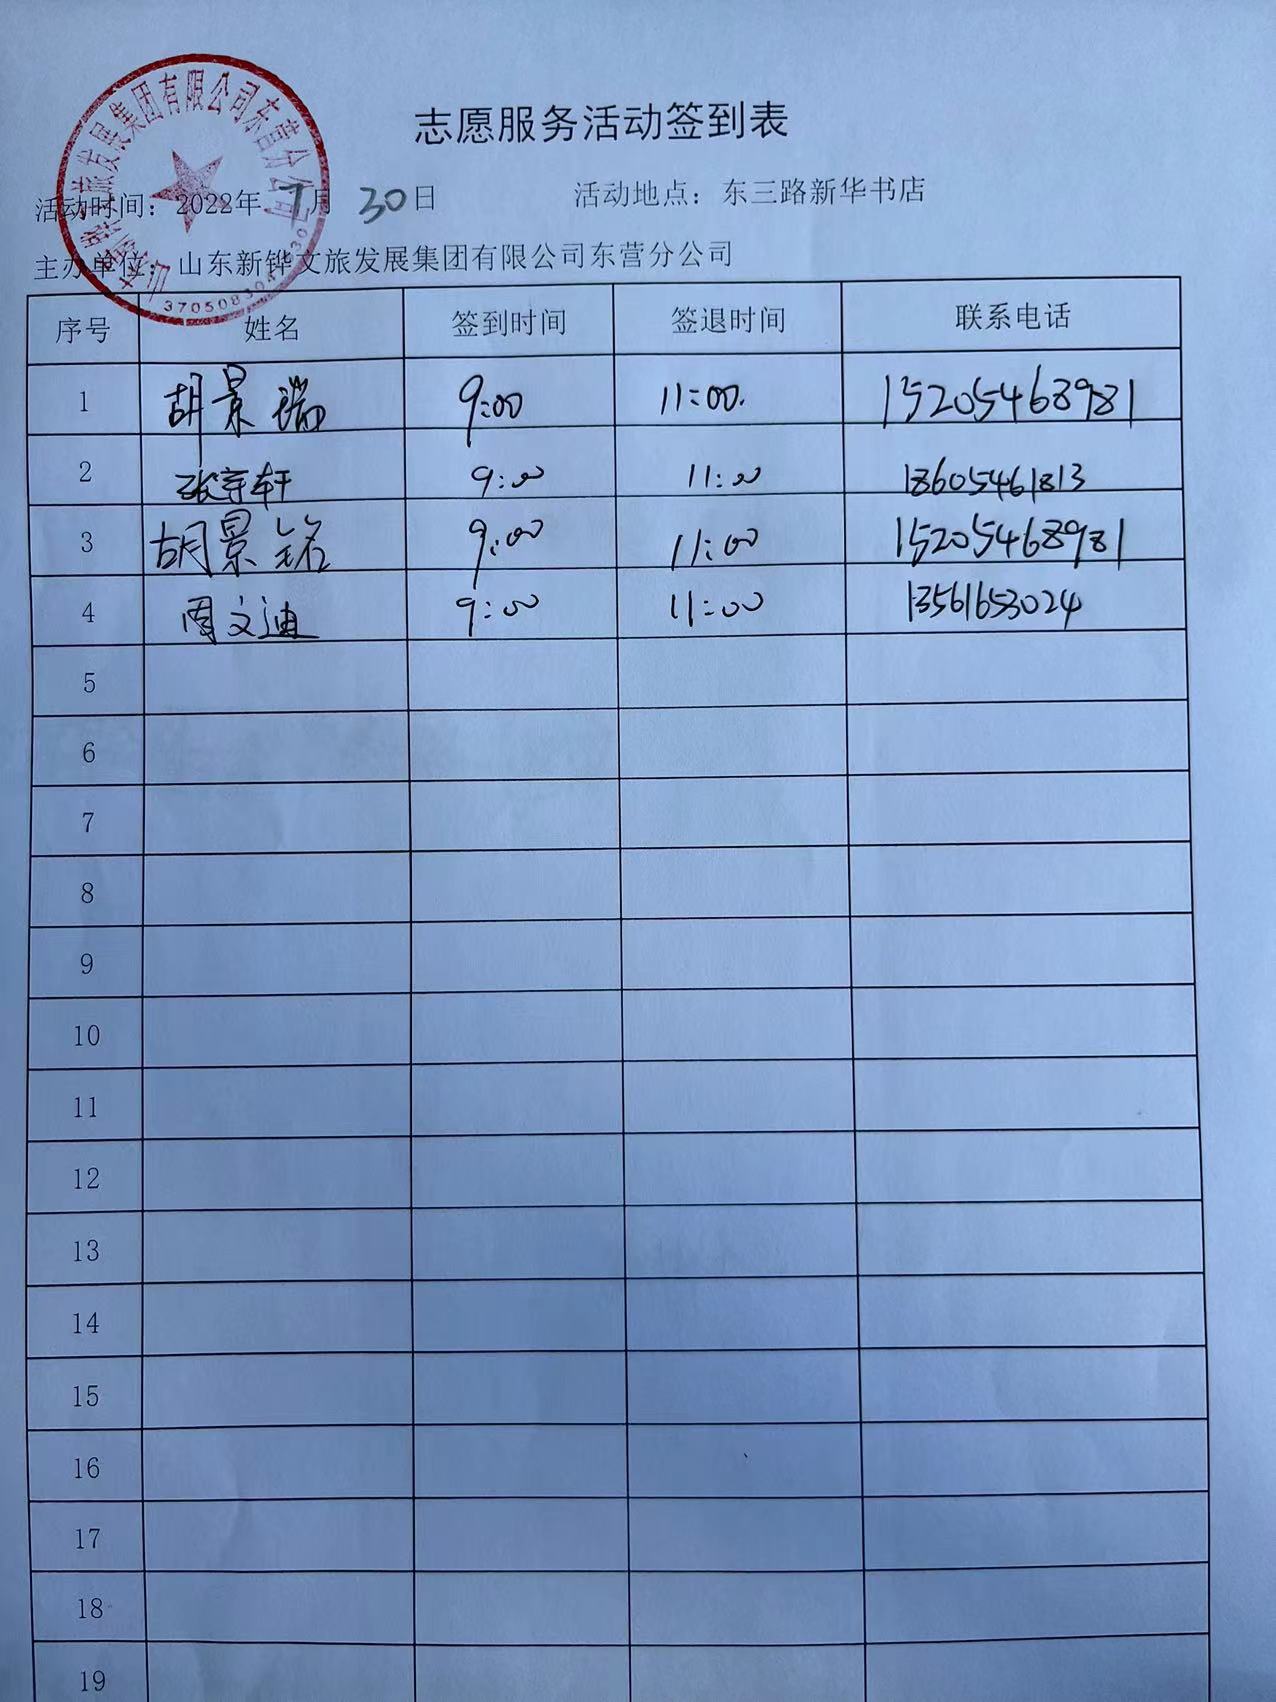 志愿服务活动签到表
活动时间：2022年 7月 30日 活动地点：东三路新华书店
主办单位：山东新铧文旅发展集团有限公司东营分公司
序号 姓名 签到时间 签退时间 联系电话
1 胡景瑞 9:00 11:00. 15205468981
2 张宇轩 9:00 11:00 18605461813
3 胡景铭 9:00 11:00 15205468981
4 周文迪 9:00 11:00 13561653024
5
6
7
8
9
10
11
12
13
14
15
16
17
18
19